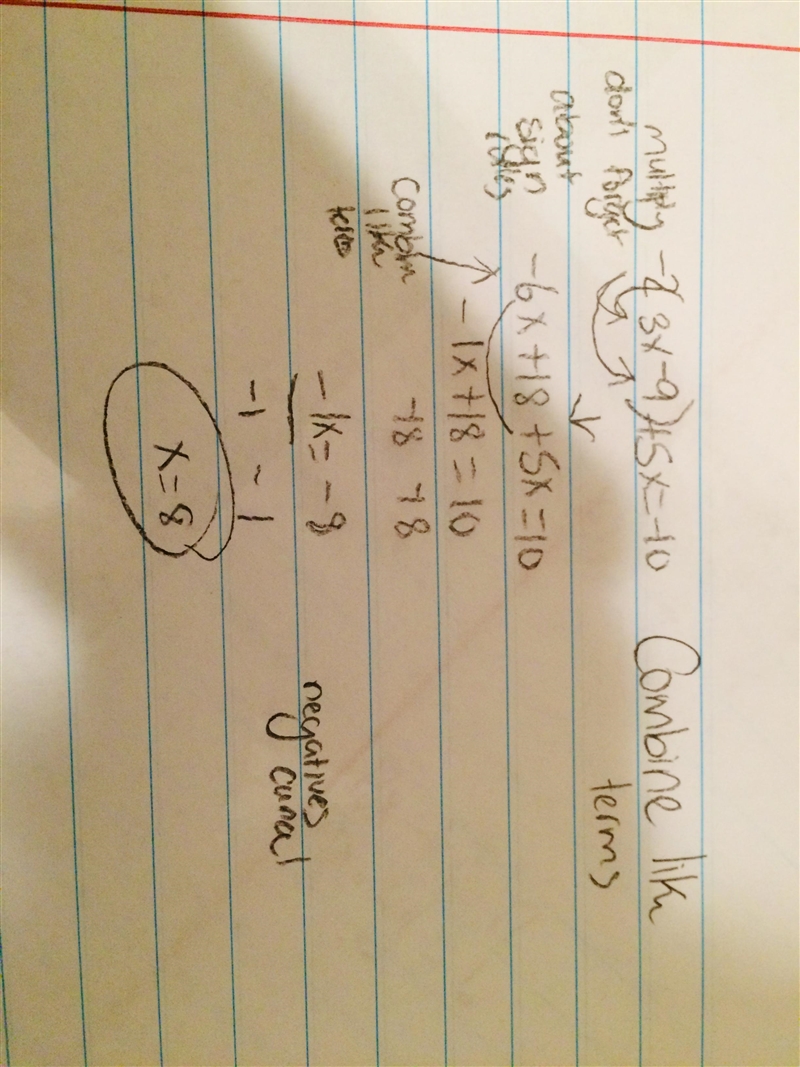 multiply -2(3x-9)+5x=-10 Combine like
don't forget terms
about
sign -6x+18+5x=10
rules
-1x+18=10
Combin
like -18 -18
-1x=-8
negatives
-1 -1 cancel
x=8